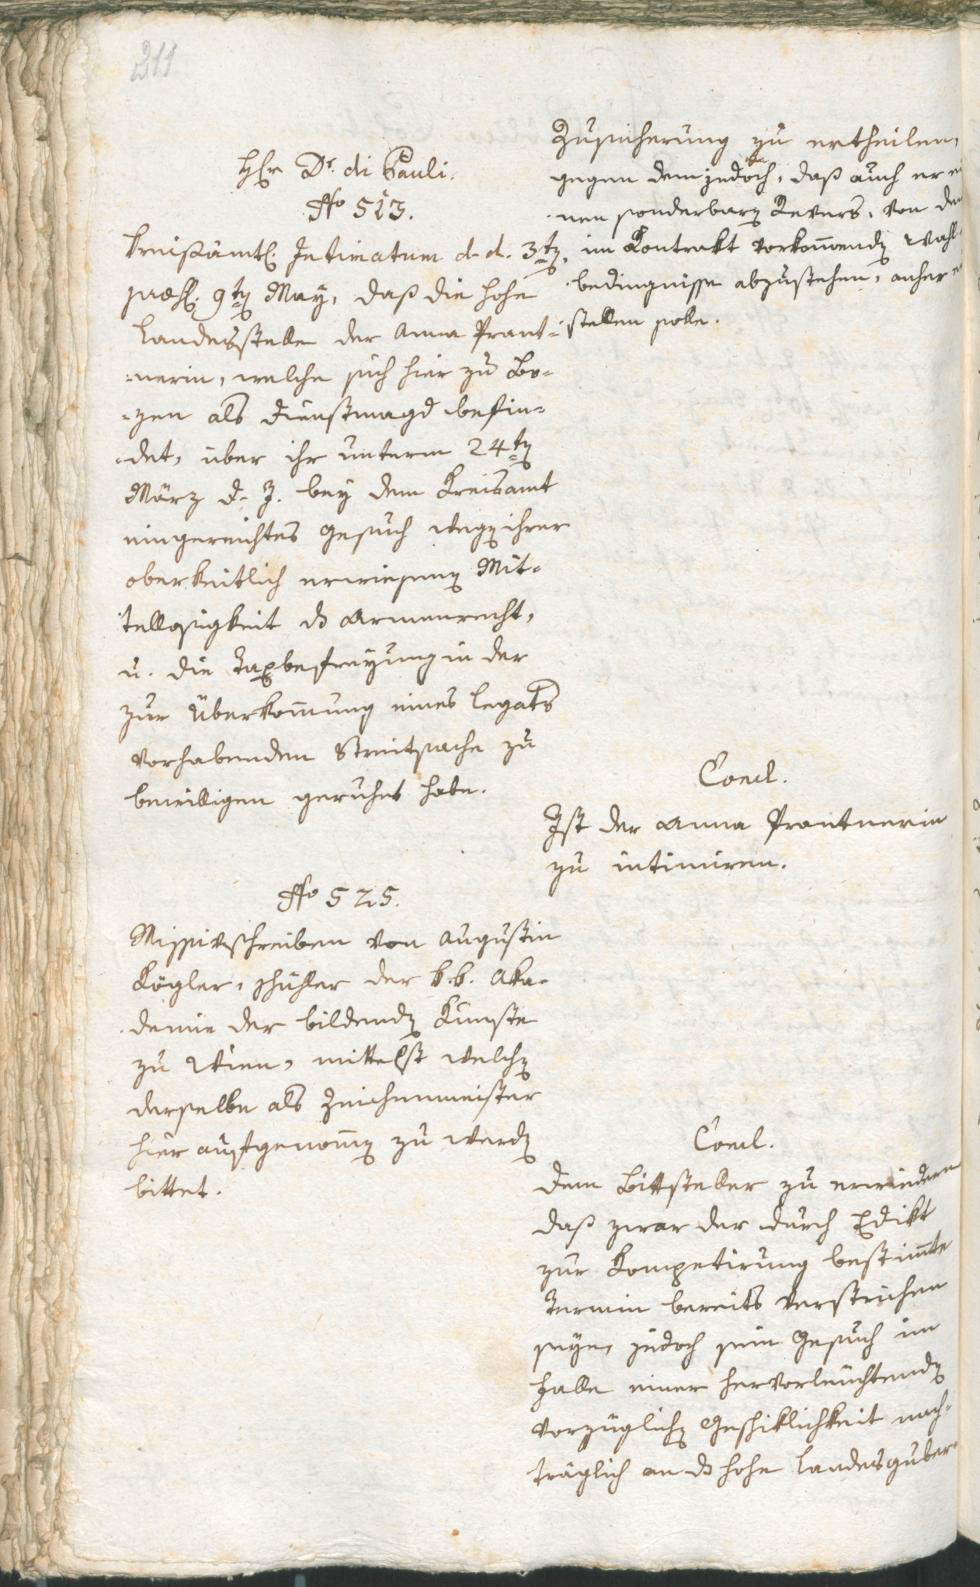 211
Hr. Dr. di Pauli.
No 513.
Kreisämtl. Intimatum d. d. 3ten,
praes. 9ten May, daß die hohe
Landesstelle der Anna Prant-
-nerin, welche sich hier zu Bo-
-zen als Dienstmagd befin-
-det, über ihr unterm 24ten
März d. J. bey dem Kreisamt
eingereichtes Gesuch wegen ihrer
oberkeitlich erwiesenen Mit-
tellosigkeit das Armenrecht,
u. die Taxbefreyung in der
zur Überkom̄ung eines Legats
vorhabenden Streitsache zu
bewilligen geruhet habe.
No 525.
Missivschreiben von Augustin
Kögler, Schüller der k. k. Aka-
-demie der bildenden Künste
zu Wien, mittelst welchen
derselbe als Zeichenmeister
hier aufgenom̄en zu werden
bittet.
Zusicherung zu ertheilen,
gegen dem jedoch, daß auch er ei
nen sonderbaren Revers, von den
im Kontrakt vorkom̄enden Wahl-
bedingnisse abzustehen, anher
stellen solle.
Concl.
Ist der Anna Prantnerin
zu intimiren.
Concl.
Dem Bittsteller zu erwiedern
daß zwar der durch Edikt
zur Kompetirung bestim̄te
Termin bereits verstrichen
seye, jedoch sein Gesuch im
Falle einer hervorleuchtenden
vorzüglichen Geschiklichkeit nach-
träglich an das hohe Landesguber-